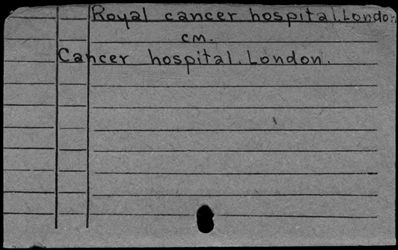 Royal cancer hospital. Londo
cm.
Cancer hospital. London.